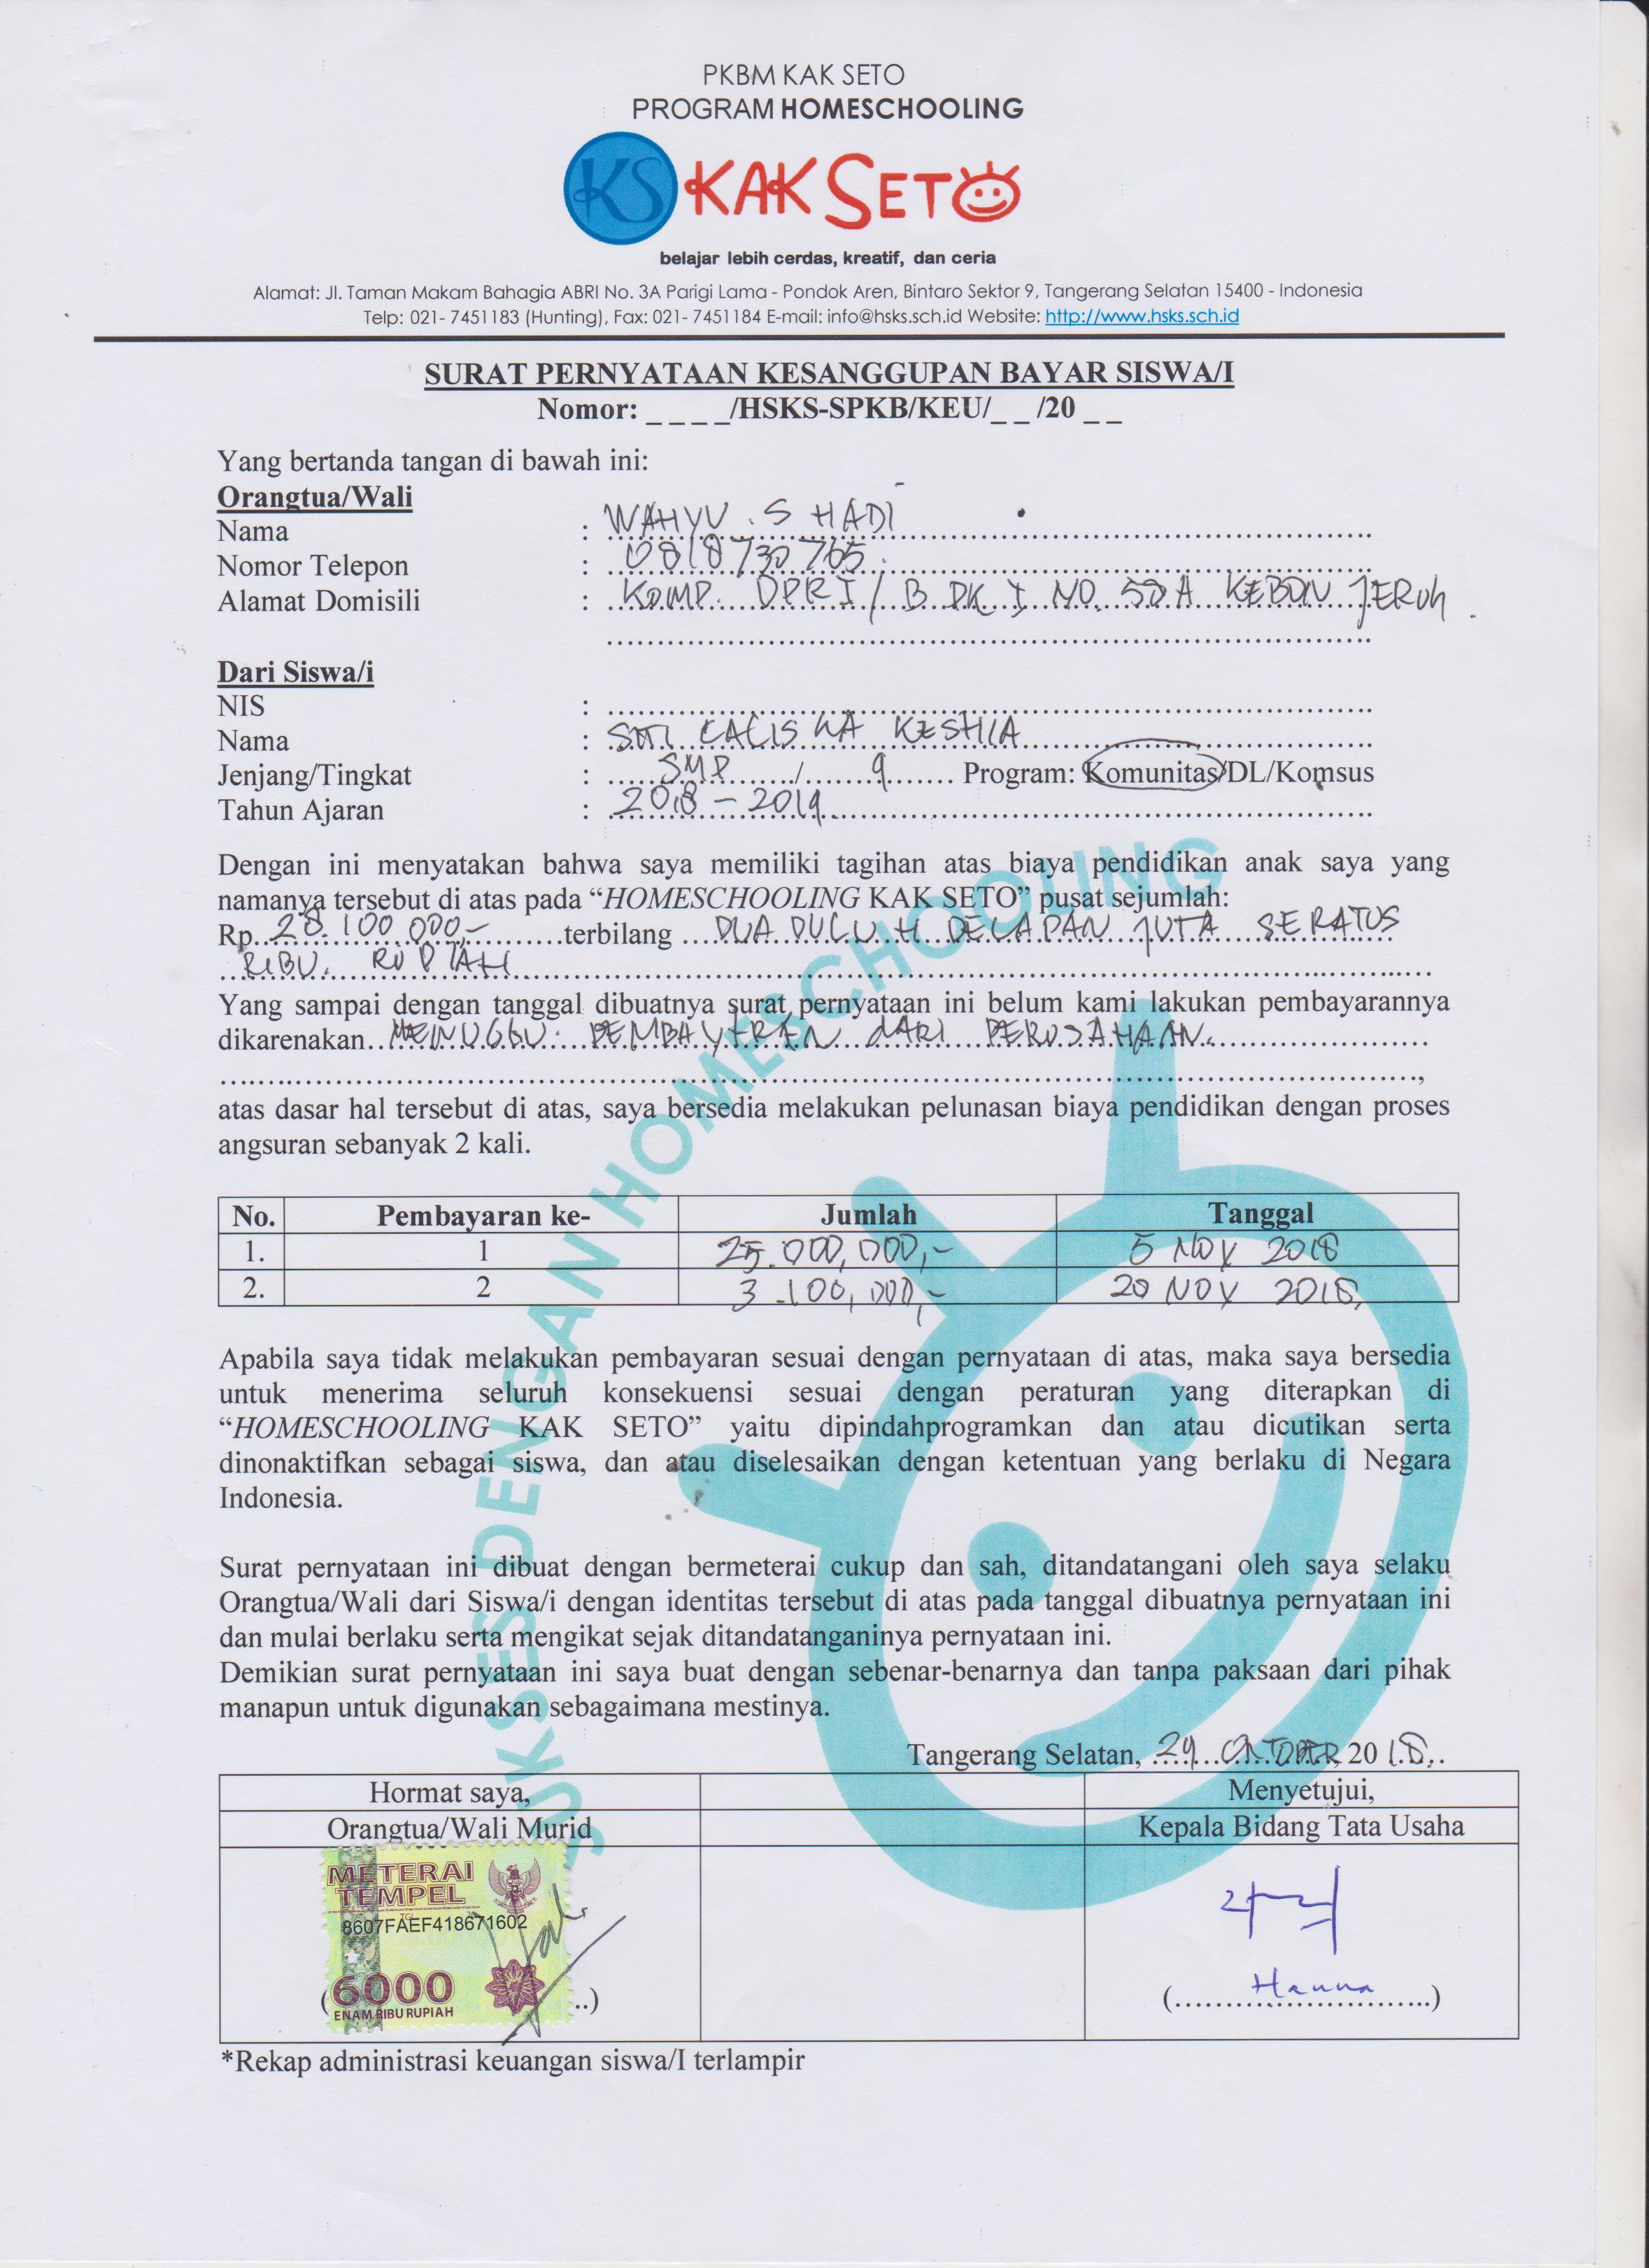 PKBM KAK SETO
PROGRAM HOMESCHOOLING
KS KAK SETO
belajar lebih cerdas, kreatif, dan ceria
Alamat: Jl. Taman Makam Bahagia ABRI No. 3A Parigi Lama - Pondok Aren, Bintaro Sektor 9, Tangerang Selatan 15400 - Indonesia
Telp: 021- 7451183 (Hunting), Fax: 021- 7451184 E-mail: info@hsks.sch.id Website: http://www.hsks.sch.id
SURAT PERNYATAAN KESANGGUPAN BAYAR SISWA/I
Nomor: _ _ _ _/HSKS-SPKB/KEU/_ _ /20 _ _
Yang bertanda tangan di bawah ini:
Orangtua/Wali
Nama : WAHYU . S HADI
Nomor Telepon : 0818730765
Alamat Domisili : KOMP. DPRI / B PK I NO. 50 A KEBON JERUK
Dari Siswa/i
NIS :
Nama : SITI CALISKA KESHIA
Jenjang/Tingkat : SMP / 9 Program: Komunitas/DL/Komsus
Tahun Ajaran : 2018 - 2019
Dengan ini menyatakan bahwa saya memiliki tagihan atas biaya pendidikan anak saya yang
namanya tersebut di atas pada “HOMESCHOOLING KAK SETO” pusat sejumlah:
Rp. 28.100.000,- terbilang DUA PULUH DELAPAN JUTA SERATUS
RIBU RUPIAH
Yang sampai dengan tanggal dibuatnya surat pernyataan ini belum kami lakukan pembayarannya
dikarenakan MENUGGU PEMBAYARAN DARI PERUSAHAAN.
atas dasar hal tersebut di atas, saya bersedia melakukan pelunasan biaya pendidikan dengan proses
angsuran sebanyak 2 kali.
No. Pembayaran ke- Jumlah Tanggal
1. 1 25.000,000,- 5 NOV 2018
2. 2 3.100,000,- 20 NOV 2018
Apabila saya tidak melakukan pembayaran sesuai dengan pernyataan di atas, maka saya bersedia
untuk menerima seluruh konsekuensi sesuai dengan peraturan yang diterapkan di
“HOMESCHOOLING KAK SETO” yaitu dipindahprogramkan dan atau dicutikan serta
dinonaktifkan sebagai siswa, dan atau diselesaikan dengan ketentuan yang berlaku di Negara
Indonesia.
Surat pernyataan ini dibuat dengan bermeterai cukup dan sah, ditandatangani oleh saya selaku
Orangtua/Wali dari Siswa/i dengan identitas tersebut di atas pada tanggal dibuatnya pernyataan ini
dan mulai berlaku serta mengikat sejak ditandatanganinya pernyataan ini.
Demikian surat pernyataan ini saya buat dengan sebenar-benarnya dan tanpa paksaan dari pihak
manapun untuk digunakan sebagaimana mestinya.
Tangerang Selatan, 29 OKTOBER 2018
Hormat saya, Menyetujui,
Orangtua/Wali Murid Kepala Bidang Tata Usaha
METERAI
TEMPEL
8607FAEF418671602
6000
ENAM RIBU RUPIAH
(Hanna)
*Rekap administrasi keuangan siswa/I terlampir
SUKSES DENGAN HOMESCHOOLING